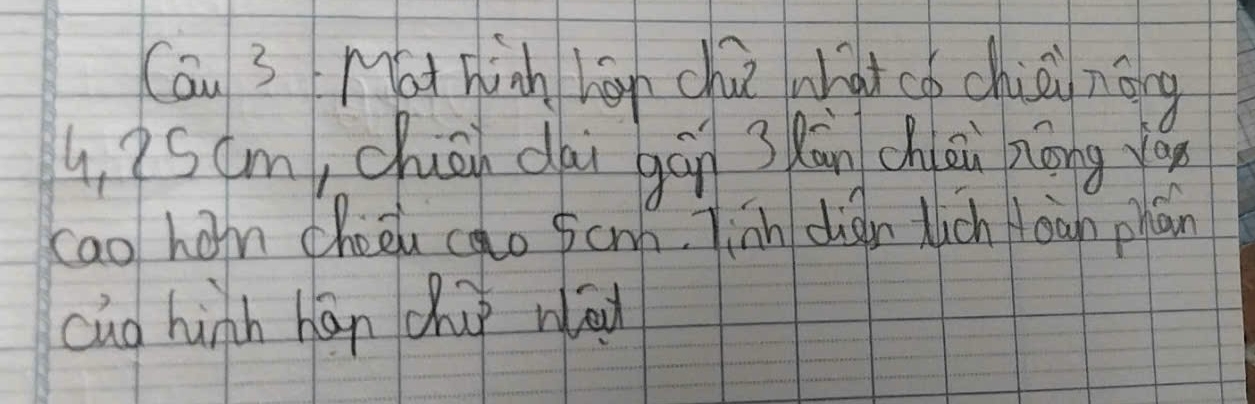 Câu 3: Một hình hộp chữ nhật có chiều rộng
4,25 cm, chiều dài gấp 3 lần chiều rộng và
cao hơn chiều cao 5cm. Tính diện tích toàn phần
của hình hộp chữ nhật